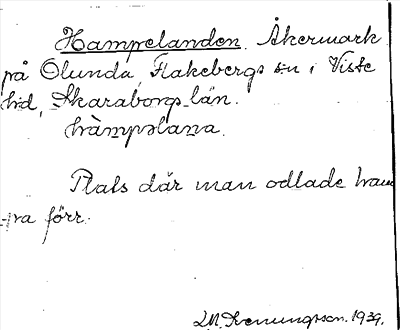 Hampelanden. Åkermark
på Olunda, Flakebergs sn i Viste
hd, Skaraborgs län.
hàmpəlana.
Plats där man odlade ham-
pa förr.
1939.